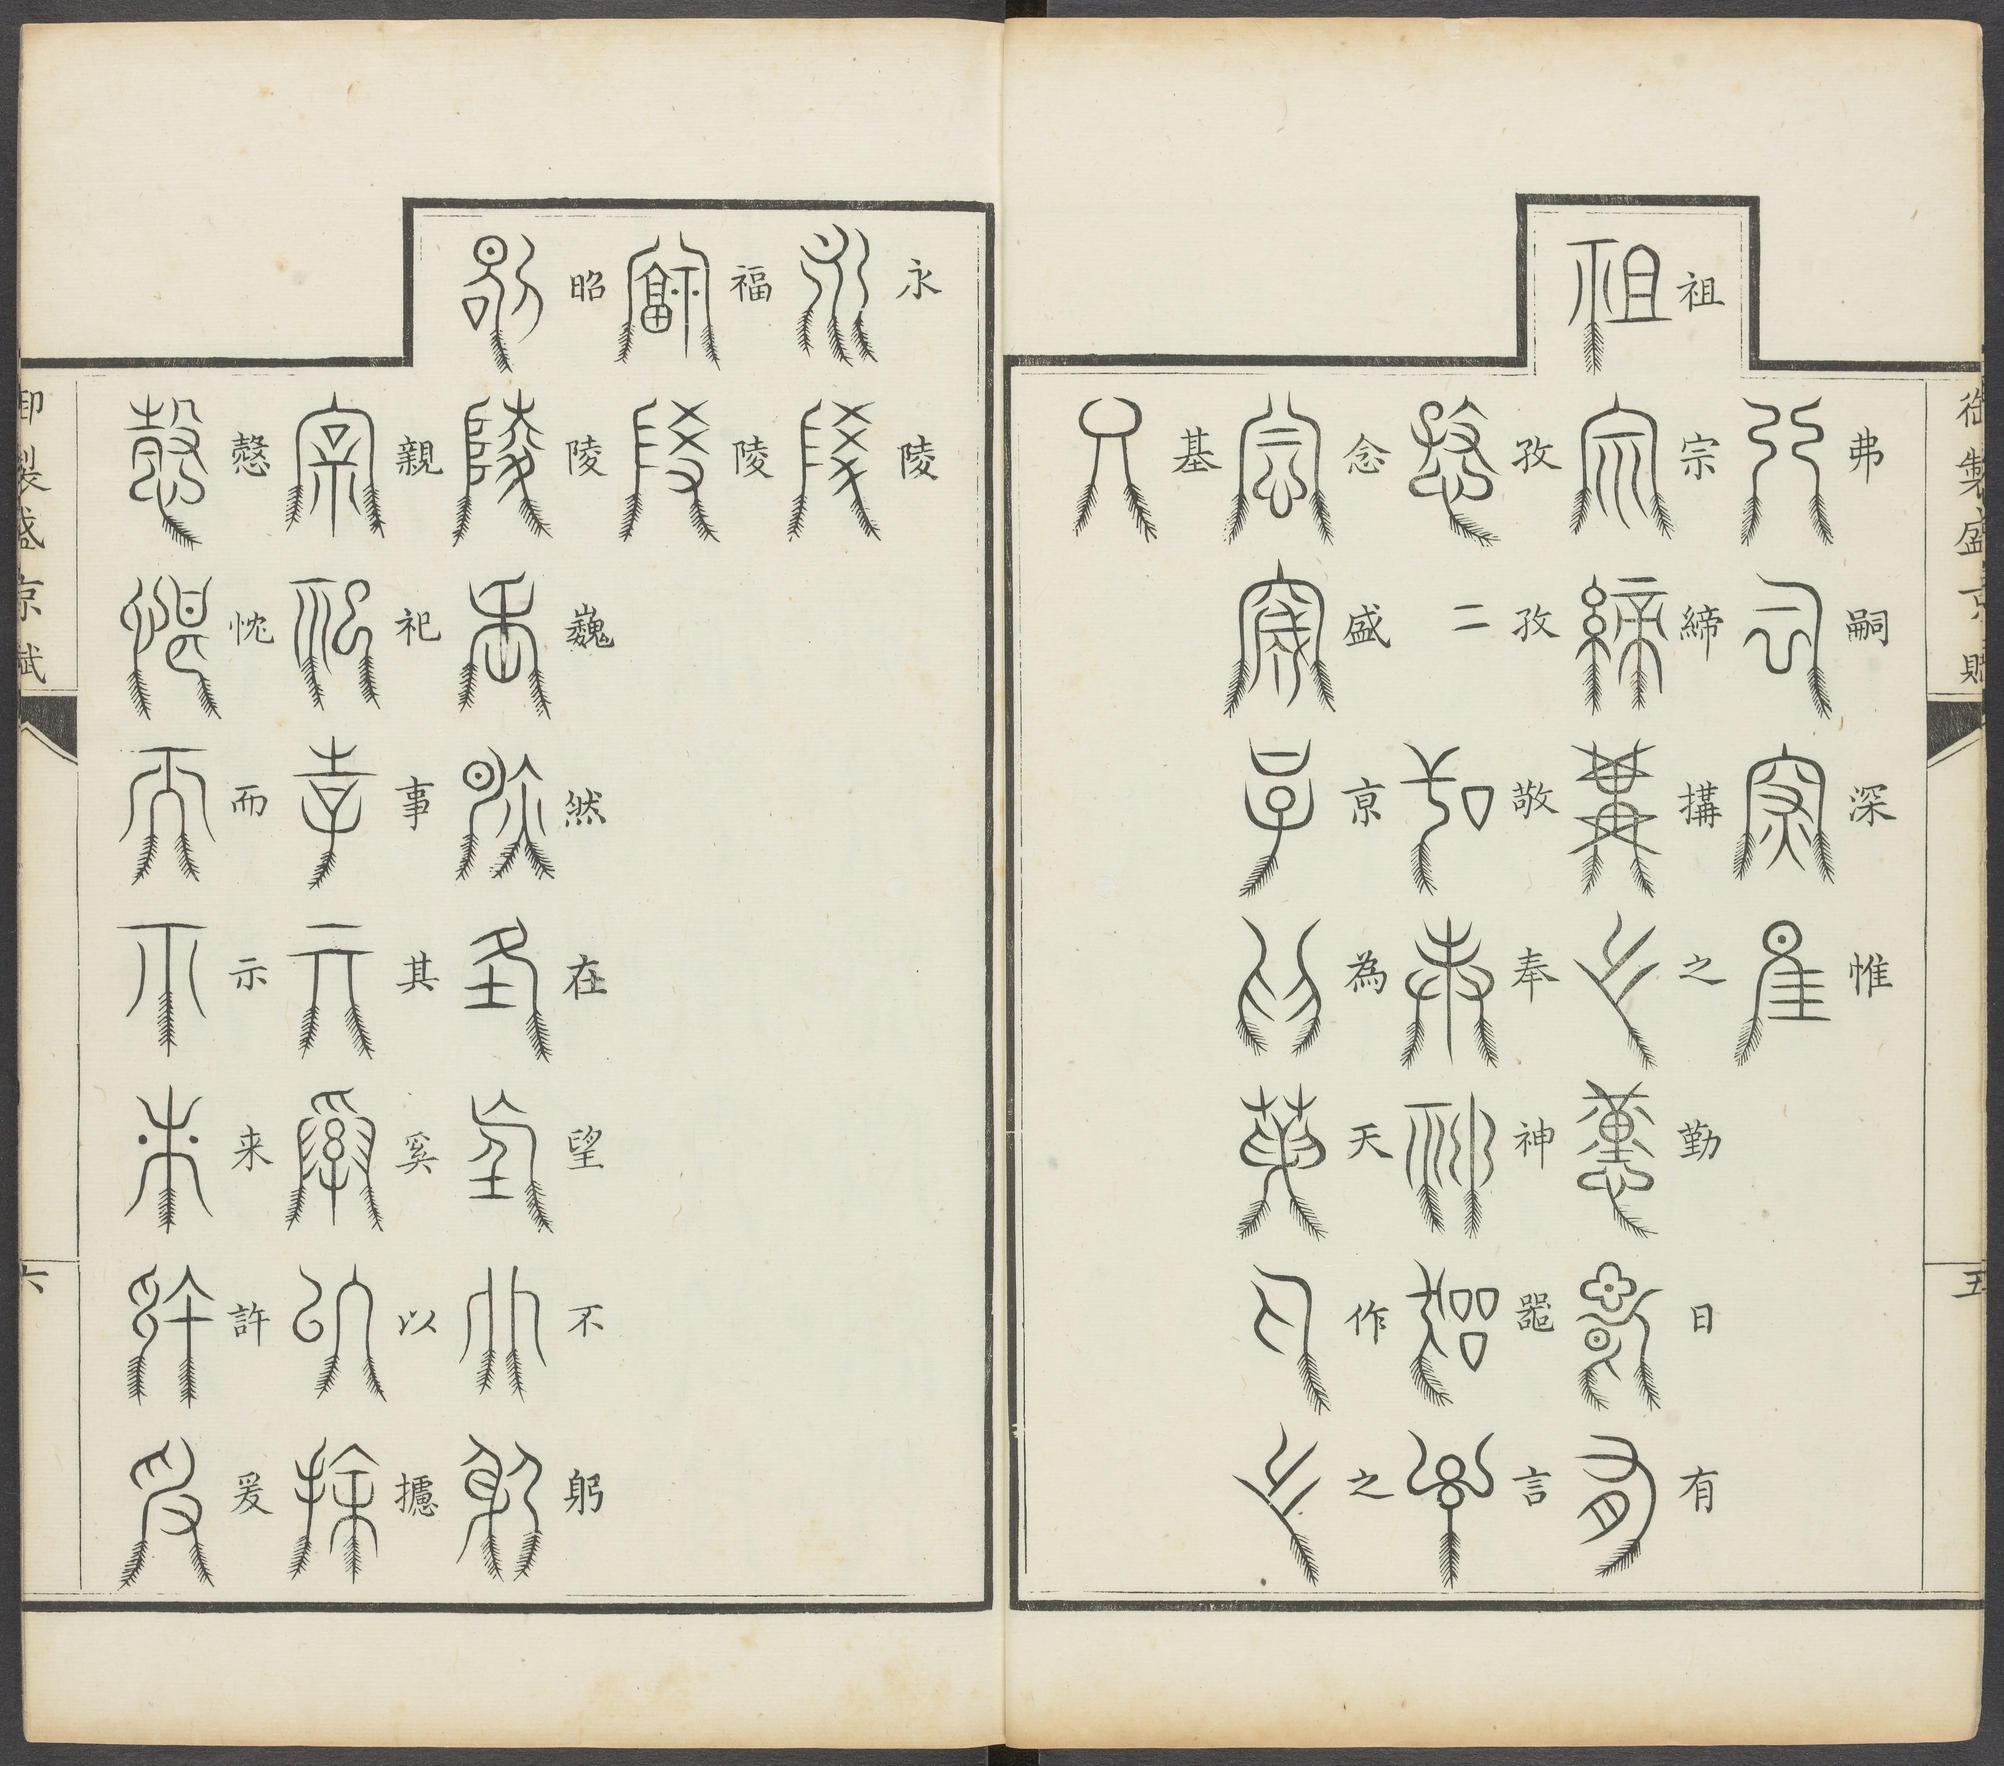 弗嗣深惟
祖宗締搆之勤日有
孜孜二敬奉神噐言
念盛京為天作之
基
御製盛京賦
五
永陵
福陵
昭陵巍然在望不躬
親祀事其奚以攄
慤忱而示来許爰
御製盛京賦
六